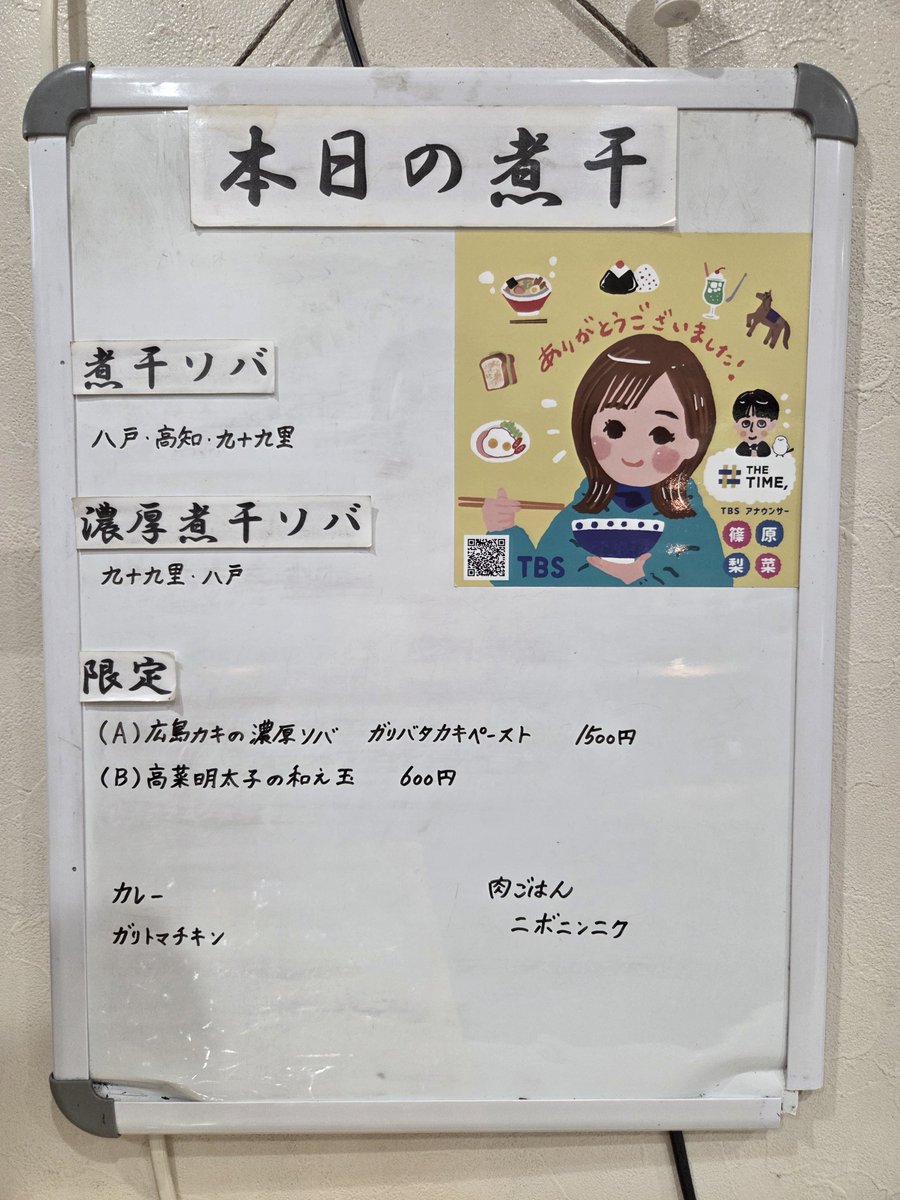 本日の煮干
ありがとうございました!
THE
TIME,
TBS アナウンサー
篠原
梨菜
TBS
煮干ソバ
八戸・高知・九十九里
濃厚煮干ソバ
九十九里・八戸
限定
(A)広島カキの濃厚ソバ ガリバタカキペースト 1500円
(B)高菜明太子の和え玉 600円
カレー
ガリトマチキン
肉ごはん
ニボニンニク